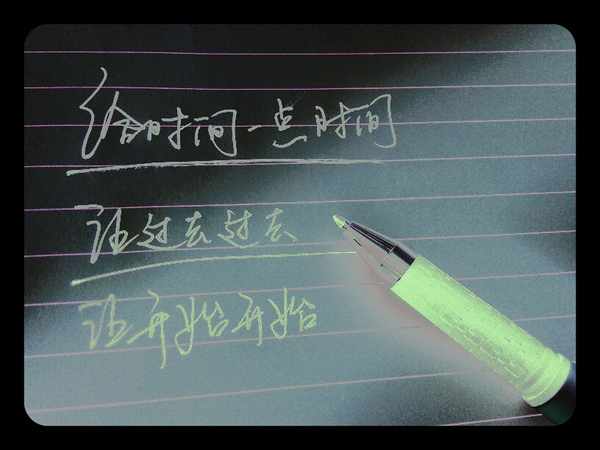 给时间一点时间
让过去过去
让开始开始